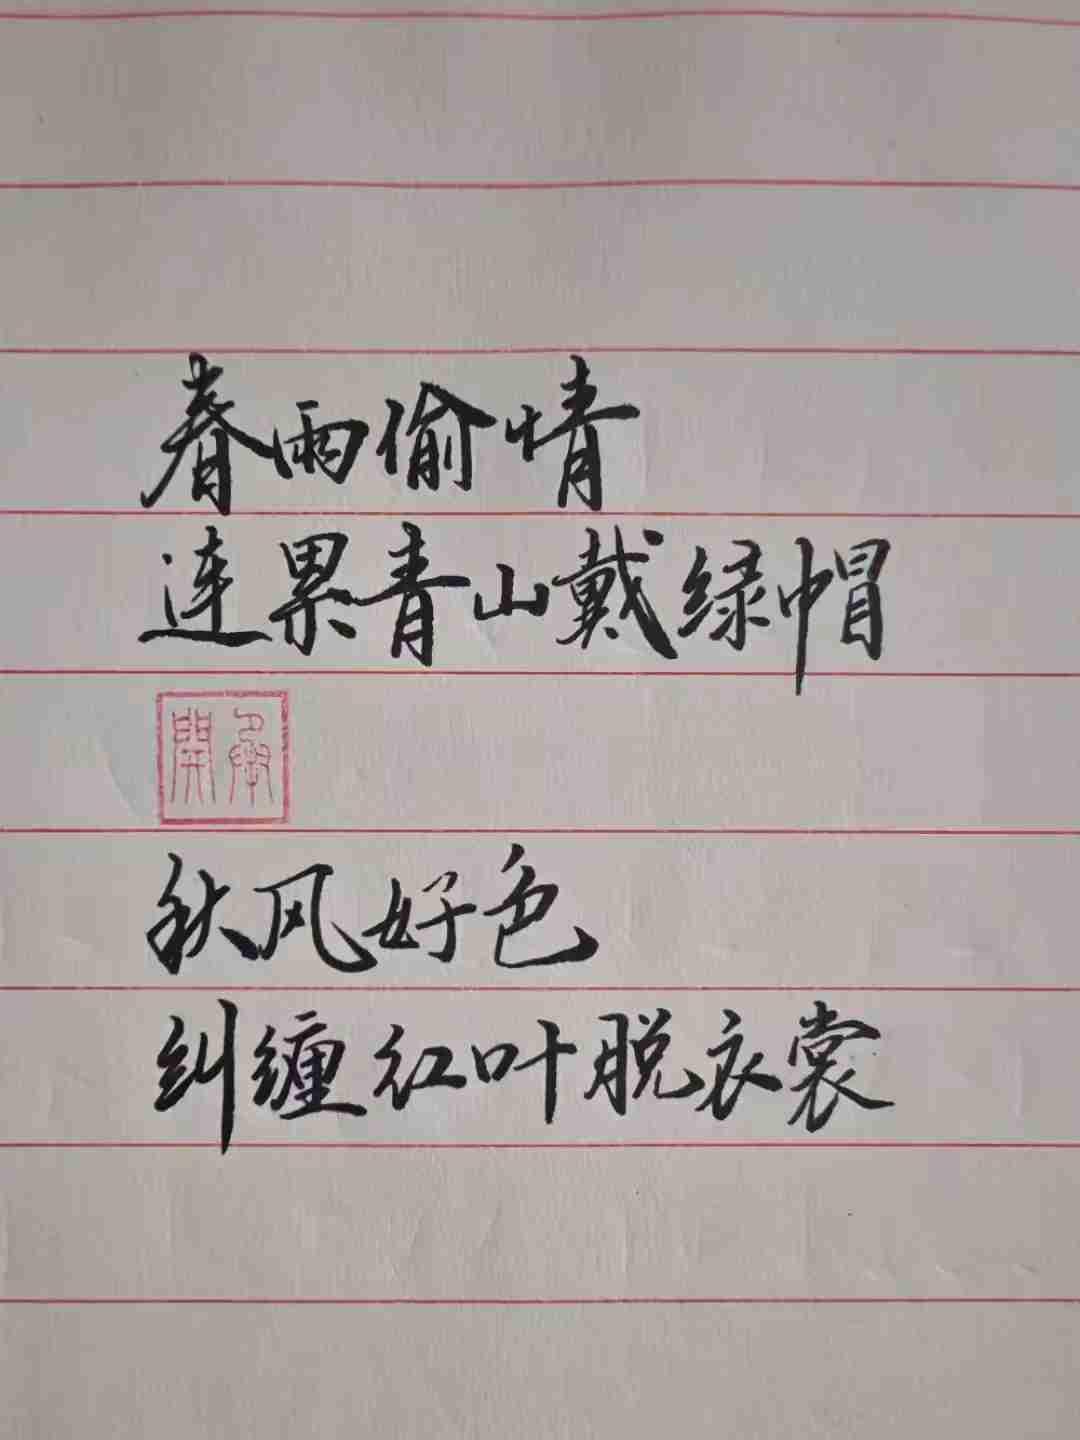 春雨偷情
连累青山戴绿帽
秋风好色
纠缠红叶脱衣裳